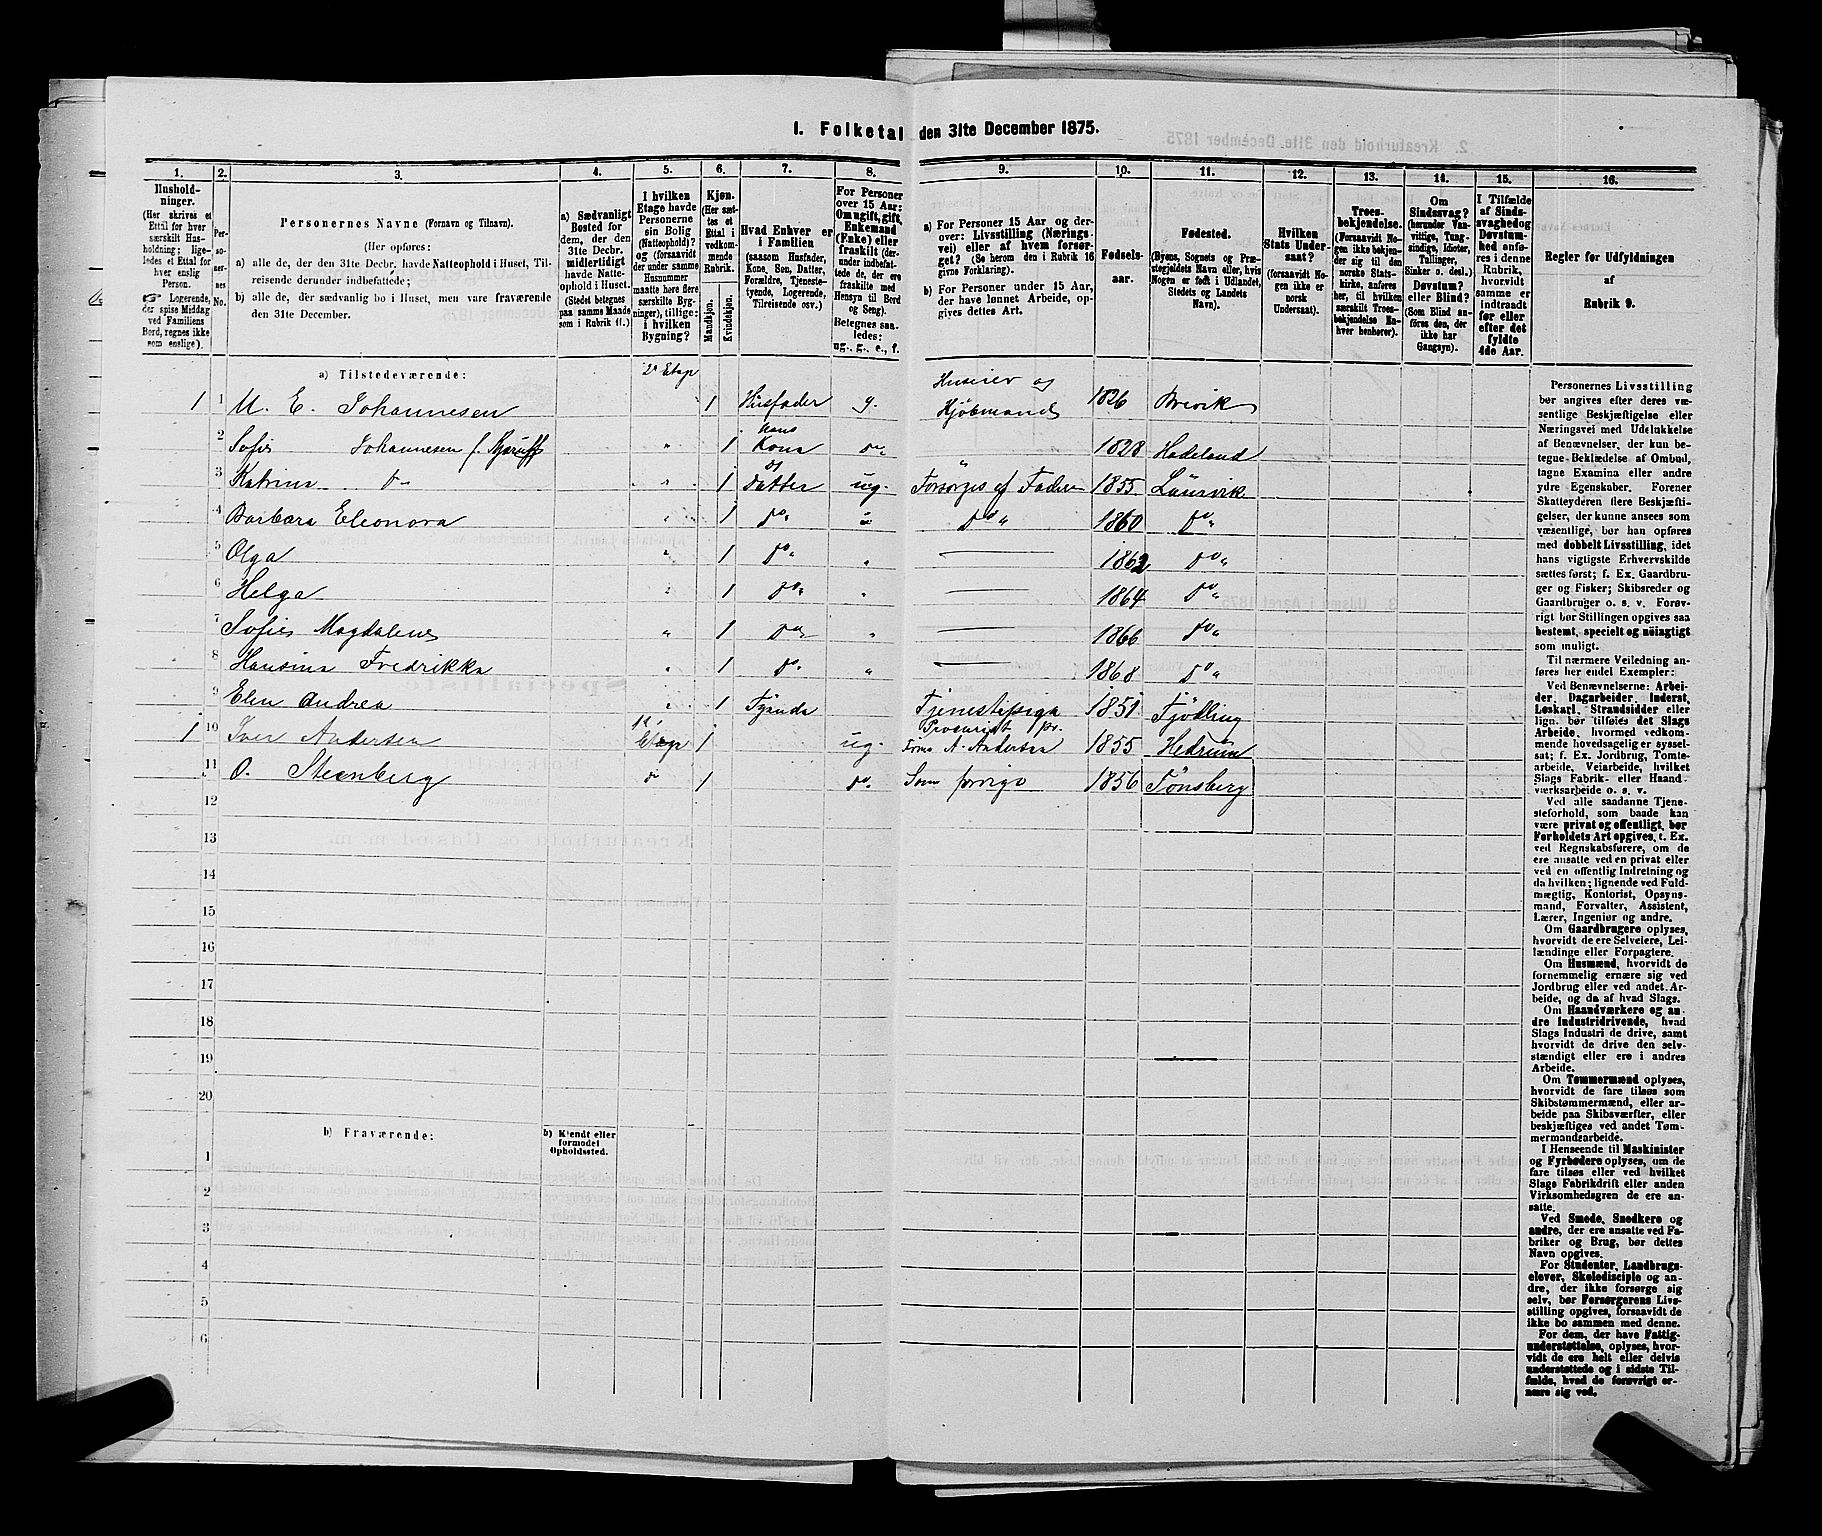 1. Folketal den 31te December 1875.
1.
2.
3.
4.
5.
6.
7.
8.
9.
10.
11.
12.
13.
14.
15.
16.
Hushold-
ninger.
(Her skrives et
Ettal for hver
særskilt Hus-
holdning; lige-
ledes et Ettal for
hver enslig
Person.
Logerende,
der spise Middag
ved Familiens
Bord, regnes ikke
som enslige).
Per-
so-
ner-
nes
No.
Personernes Navne (Fornavn og Tilnavn).
(Her opføres:
a) alle de, der den 31te Decbr. havde Natteophold i Huset, Til-
reisende derunder indbefattede;
b) alle de, der sædvanlig bo i Huset, men vare fraværende
den 31te December.
a) Sædvanligt
Bosted for
dem, der den
31te Decbr.
midlertidigt
havde Natte-
ophold i Huset.
(Stedet betegnes
paa samme Maade
som i Rubrik 11.)
I hvilken
Etage havde
Personerne
sin Bolig
(Natteophold)?
og (forsaavidt
der under samme
Husnummer
maatte høre flere
særskilte Byg-
ninger), tillige:
i hvilken
Bygning?
Kjøn.
(Her sæt-
tes et
Ettal i
vedkom-
mende
Rubrik.
Mandkjøn.
Kvindekjøn.
Hvad Enhver er
i Familien
(saasom Husfader,
Kone, Søn, Datter,
Forældre, Tjeneste-
tyende, Logerende,
Tilreisende osv.)
For Personer
over 15 Aar:
Om ugift, gift,
Enkemand
(Enke) eller
fraskilt (der-
under indbefat-
tede de, der ere
fraskilte med
Hensyn til Bord
og Seng).
Betegnes saa-
ledes:
ug., g., e., f.
a) For Personer 15 Aar og der-
over: Livsstilling (Nærings-
vei) eller af hvem forsør-
get? (Se herom den i Rubrik 16
givne Forklaring).
b) For Personer under 15 Aar,
der have lønnet Arbeide, op-
gives dettes Art.
Fødsels-
aar.
Fødested.
(Byens, Sognets og Præ-
stegjeldets Navn eller, hvis
Nogen er født i Udlandet,
Stedets og Landets
Navn).
Hvilken
Stats Under-
saat?
(forsaavidt No-
gen ikke er
norsk
Undersaat).
Troes-
bekjendelse.
(Forsaavidt No-
gen ikke bekjen-
der sig til den
norske Stats-
kirke, anføres
her, til hvilken
særskilte Troes-
bekjendelse En-
hver henhører).
Om
Sindssvag?
(herunder Van-
vittige, Tung-
sindige, Idioter,
Tullinger,
Sinker o. desl.)
Døvstum?
eller Blind?
(Som Blind an-
føres den, der
ikke har
Gangsyn).
I Tilfælde
af Sinds-
svaghed og
Døvstum-
hed anfø-
res i denne
Rubrik,
hvorvidt
samme er
indtraadt
før eller
efter det
fyldte
4de Aar.
Regler for Udfyldningen
af
Rubrik 9.
a) Tilstedeværende:
2 Etage
1 1 M. E. Johannesen 1 Husfader g. Huseier og Kjöbmand 1826 Brevik
2 Sofie Johannesen f. " 1 hans Kone do 1828 Hadeland
3 Katrine do " 1 Datter ug. Forsörges af Faderen 1855 Laurvik
4 Barbara Eleonora " 1 do " do " 1860 do "
5 Olga " 1 do " 1862 do "
6 Helga " 1 do " 1864 do "
7 Sofie Magdalene " 1 do " 1866 do "
8 Hansine Fredrikke " 1 do " 1868 do "
9 Elen Andrea " 1 Tyende Tjenestepige 1851 Tjödling
1 10 Iver Andersen 1 Etage 1 ug. A. Andersen 1855 Hedrum
11 O. Steenberg do 1 do. Som forrige 1856 Tönsberg
12
13
14
15
16
17
18
19
20
b) Fraværende:
b) Kjendt eller
formodet
Opholdssted.
1
2
3
4
5
6
Personernes Livsstilling
bør angives efter deres væ-
sentlige Beskjæftigelse eller
Næringsvei med Udelukkelse
af Benævnelser, der kun be-
tegne Beklædelse af Ombud,
tagne Examina eller andre
ydre Egenskaber. Forener
Skatteyderen flere Beskjæfti-
gelser, der kunne ansees som
væsentlige, bør han opføres
med dobbelt Livsstilling, idet
hans vigtigste Erhvervskilde
sættes først; f. Ex. Gaardbru-
ger og Fisker; Skibsreder og
Gaardbruger o. s. v. Forøv-
rigt bør Stillingen opgives saa
bestemt, specielt og nøiagtigt
som muligt.
Til nærmere Veiledning an-
føres her endel Exempler:
Ved Benævnelserne: Arbei-
der, Dagarbeider, Inderst,
Løskarl, Strandsidder eller
lign. bør tilføies det Slags
Arbeide, hvormed vedkom-
mende hovedsagelig er syssel-
sat; f. Ex. Jordbrug, Tomte-
arbeide, Veiarbeide, hvilket
Slags Fabrik- eller Haand-
værksarbeide o. s. v.
Ved alle saadanne Tjene-
steforhold, som baade kan
være privat og offentligt, bør
Forholdets Art opgives, t. Ex.
ved Regnskabsførere, om de
ere ansatte ved en privat eller
ved en offentlig Indretning og
da hvilken; lignende ved Fuld-
mægtig, Kontorist, Opsyns-
mand, Forvalter, Assistent,
Lærer, Ingeniør og andre.
Om Gaardbrugere oplyses,
hvorvidt de ere Selveiere, Lei-
lændinge eller Forpagtere.
Om Husmænd, hvorvidt de
fornemmelig ernære sig ved
Jordbrug eller ved andet Ar-
beide, og da af hvad Slags.
Om Haandværkere og an-
dre Industridrivende, hvad
Slags Industri de drive, samt
hvorvidt de drive den selv-
stændigt eller ere i andres
Arbeide.
Om Tømmermænd oplyses,
hvorvidt de fare tilsøs som
Skibstømmermænd, eller ar-
beide paa Skibsværfter, eller
beskjæftiges ved andet Tøm-
mermandsarbeide.
I Henseende til Maskinister
og Fyrbødere oplyses, om de
fare tilsøs eller ved hvilket
Slags Fabrikdrift eller anden
Virksomhedsgren de ere an-
satte.
Ved Smede, Snedkere og
andre, der ere ansatte ved Fa-
briker og Brug, bør dettes
Navn opgives.
For Studenter, Landbrugs-
elever, Skoledisciple og an-
dre, der ikke forsørge sig
selv, bør Forsørgerens Livs-
stilling opgives, forsaavidt de
ikke bo sammen med denne.
For dem, der have Fattig-
understøttelse, oplyses, hvor-
vidt de ere helt eller delvis
understøttede og i sidste Til-
fælde, hvad de forøvrigt er-
nære sig ved.